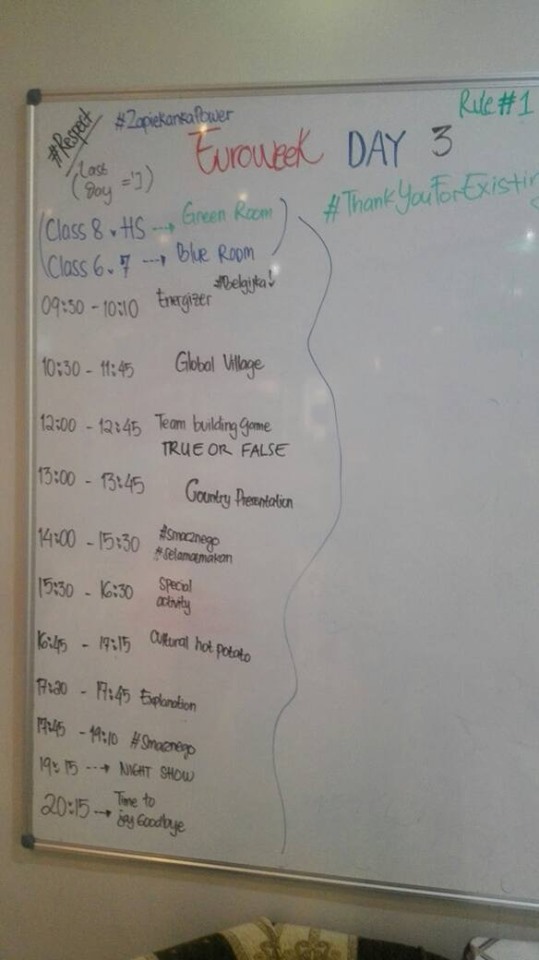 Rule #1
#Respect
#ZapiekankaPower
Euroweek DAY 3
(Last
Day ='])
#ThankYouForExistin
Class 8. HS → Green Room
Class 6. 7 → Blue Room
#Belgijka!
09:30 - 10:10 Energizer
10:30 - 11:45 Global Village
12:00 - 12:45 Team building Game
TRUE OR FALSE
13:00 - 13:45 Country Presentation
14:00 - 15:30 #Smacznego
#selamatmakan
15:30 - 16:30 Special
activity
16:45 - 17:15 Cultural hot potato
17:20 - 17:45 Explanation
17:45 - 19:10 #Smacznego
19:15 → NIGHT SHOW
20:15 → Time to
say Goodbye